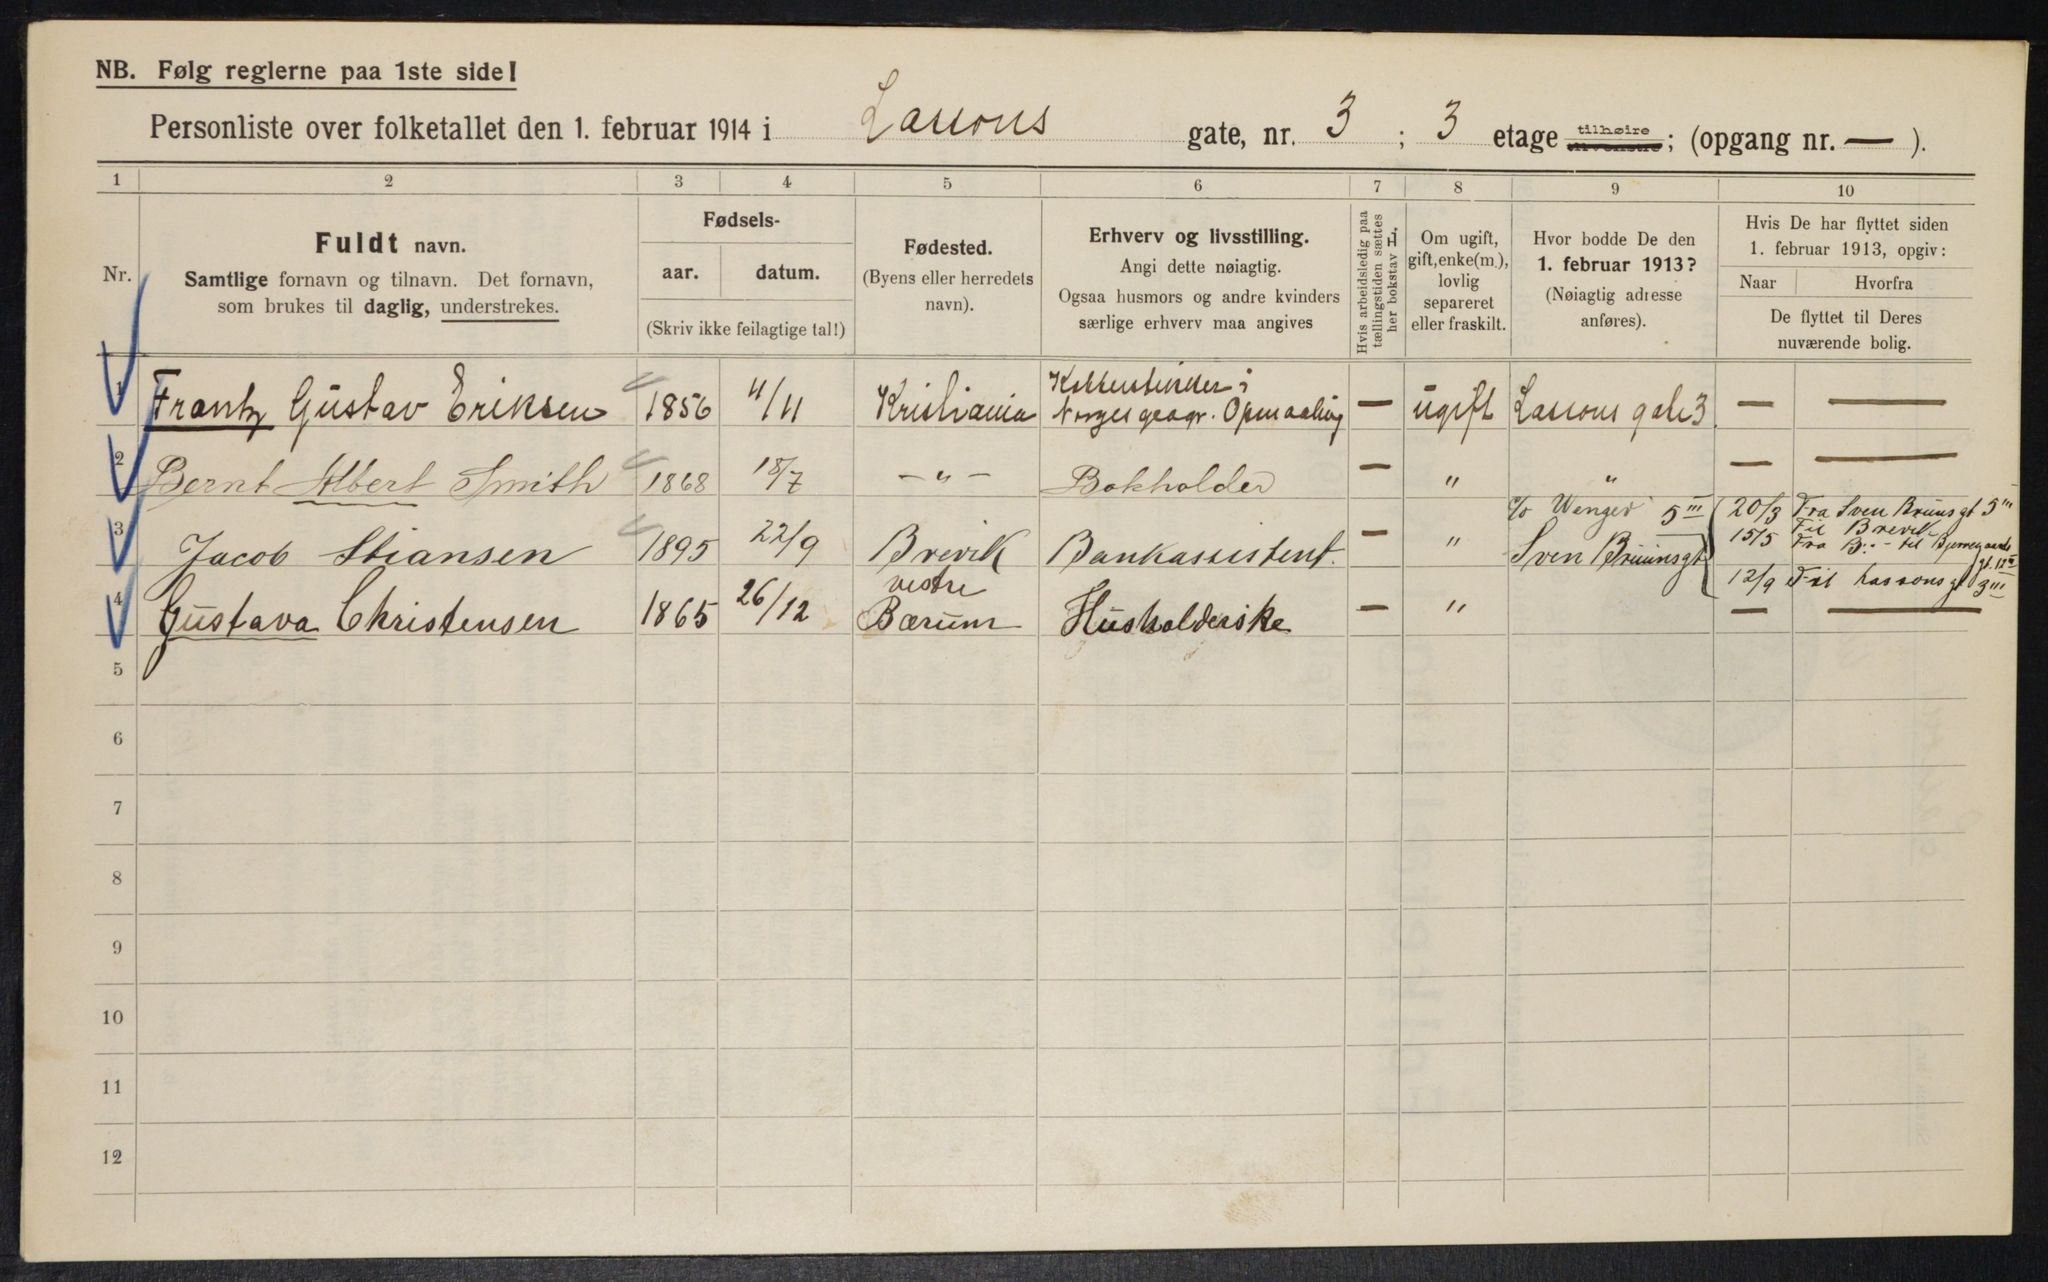 NB. Følg reglerne paa 1ste side!
Personliste over folketallet den 1. februar 1914 i Lassons gate, nr. 3 ; 3 etage tilhøire ; (opgang nr. — ).
1 2 3 4 5 6 7 8 9 10
Nr.
Fuldt navn.
Samtlige fornavn og tilnavn. Det fornavn,
som brukes til daglig, understrekes.
Fødsels-
aar. datum.
(Skriv ikke feilagtige tal!)
Fødested.
(Byens eller herredets
navn).
Erhverv og livsstilling.
Angi dette nøiagtig.
Ogsaa husmors og andre kvinders
særlige erhverv maa angives
Hvis arbeidsledig paa
tællingstiden sættes
her bokstav L.
Om ugift,
gift, enke(m.),
lovlig
separeret
eller fraskilt.
Hvor bodde De den
1. februar 1913?
(Nøiagtig adresse
anføres).
Hvis De har flyttet siden
1. februar 1913, opgiv:
Naar Hvorfra
De flyttet til Deres
nuværende bolig.
1 Frantz Gustav Eriksen 1856 4/11 Kristiania i Norges geogr. Opmaaling — ugift Lassons gate 3 — —
2 Bernt Albert Smith 1868 18/7 — " — Bokholder — " " — —
3 Jacob Stiansen 1895 22/9 Brevik Bankassistent. — " c/o Wenger 5 III
Sven Bruunsgt
20/3 Fra Sven Bruunsgt 5 III
15/5 Til Brevik
Fra B.— til
12/9 Til Lassonsgt 3 III
4 Gustava Christensen 1865 26/12 vestre Bærum Husholderske — " — —
5
6
7
8
9
10
11
12